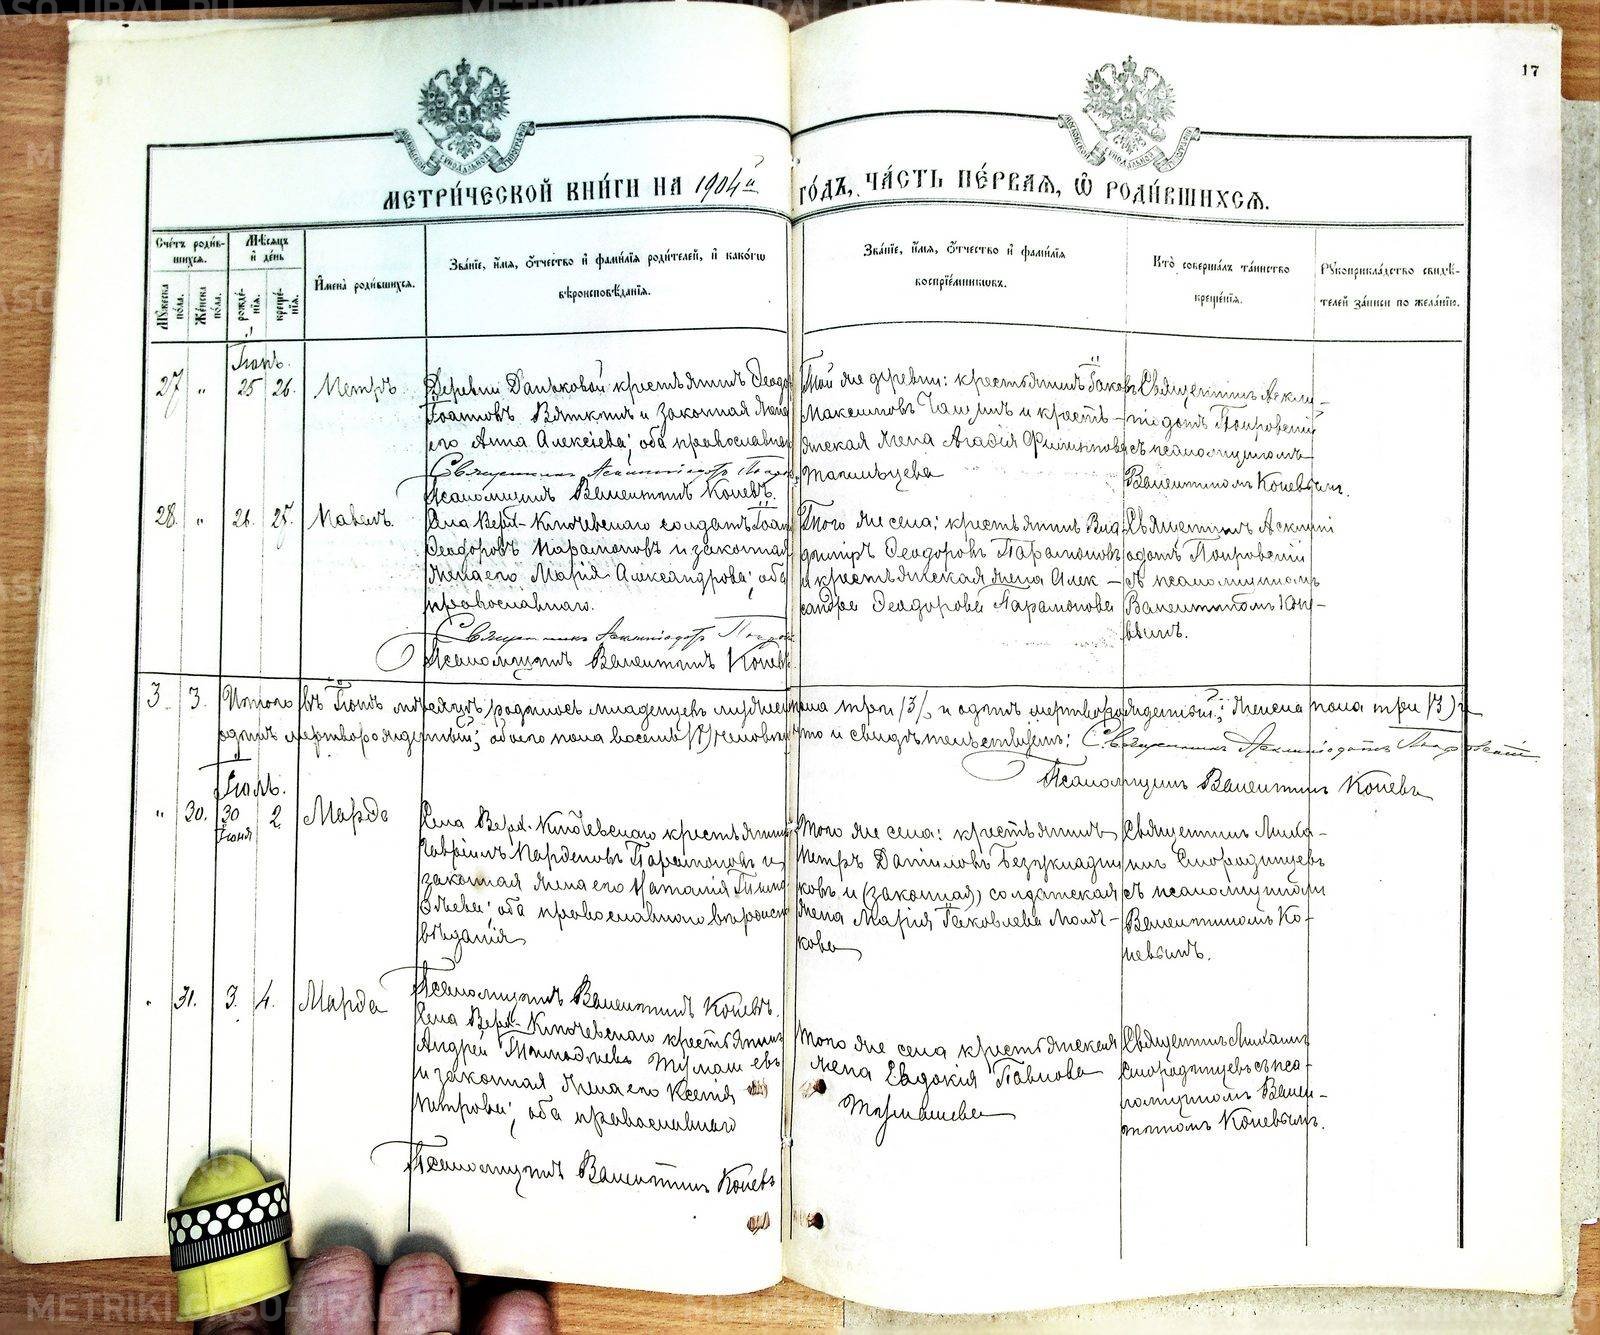 METRIKI.GASO-URAL.RU
17
МЕТРИ́ЧЕСКОЙ КНИ́ГИ НА 1904й ГО́ДЪ, ЧА́СТЬ ПЕ́РВАЯ, Ѡ РОДИ́ВШИХСЯ.
Сче́тъ роди́вшихся.
Мѣ́сяцъ и де́нь
Мꙋ́жеска по́ла.
Же́нска по́ла.
рожде́нїя.
креще́нїя.
И҆мена̀ роди́вшихся.
Зва́нїе, и҆́мя, ѻ҆́тчество и҆ фами́лїя роди́телей, и҆ како́гѡ
вѣроисповѣ́данїя.
Зва́нїе, и҆́мя, ѻ҆́тчество и҆ фами́лїя
воспрїе́мникѡвъ.
Кто̀ соверша́лъ та́инство
креще́нїя.
Рꙋкоприкла́дство свидѣ́-
телей за́писи по жела́нїю.
Іюнь.
27 " 25 26. Петръ
Деревни крестьянинъ Ѳеодоръ
Іоанновъ Вяткинъ и законная жена
его Анна Алексіева; оба православнаго
Священникъ Асклипіодотъ
Псаломщикъ Валентинъ Коневъ.
Той же деревни: крестьянинъ Іаковъ
Максимовъ и кресть-
янская жена Агаѳія
Священникъ Аскли-
піодотъ Покровскій
съ псаломщикомъ
Валентиномъ Коневымъ.
28. " 21. 25. Павелъ.
Села Верх-Ключевскаго солдатъ Іоаннъ
Ѳеодоровъ Парамоновъ и законная
жена его Марія Александрова; оба
православнаго.
Священникъ Асклипіодотъ
Псаломщикъ Валентинъ Коневъ.
Того же села: крестьянинъ Вла-
диміръ Ѳеодоровъ Парамоновъ
и крестьянская жена Алек-
сандра Ѳеодорова Парамонова
Священникъ Асклипі
одотъ Покровскій
съ псаломщикомъ
Валентиномъ Коне-
вымъ.
3. 3. Итого въ Іюнѣ мѣсяцѣ родилось младенцевъ мужеска пола три /3/, и одинъ мертворожденный; женска пола три /3/ и
одинъ мертворожденный; обоего пола восемь /8/ человѣкъ, что и свидѣтельствуемъ: Священникъ Асклипіодотъ Покровскій
Псаломщикъ Валентинъ Коневъ
Іюль.
" 30. 30 Іюня 2. Марѳа
Села Верх-Ключевскаго крестьянинъ
Гавріилъ Парамоновъ и
законная жена его Наталія
оба православнаго вѣроиспо-
вѣданія
Псаломщикъ Валентинъ Коневъ.
Того же села: крестьянинъ
Петръ Даниловъ Безукладни-
ковъ и (законная) солдатская
жена Марія Іаковлева
кова
Священникъ Миха-
илъ Смородинцевъ
съ псаломщикомъ
Валентиномъ Ко-
невымъ.
" 31. 3. 4. Марѳа
Села Верх-Ключевскаго крестьянинъ
Андрей Тимоѳіевъ Тумашевъ
и законная жена его Ксенія
Петрова; оба православнаго
Псаломщикъ Валентинъ Коневъ
Того же села крестьянская
жена Евдокія Павлова
Тумашева
Священникъ Михаилъ
Смородинцевъ съ пса-
ломщикомъ Вален-
тиномъ Коневымъ.
METRIKI.GASO-URAL.RU